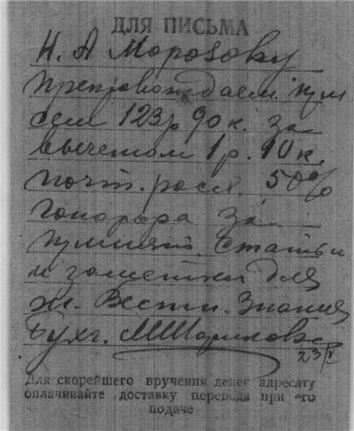 ДЛЯ ПИСЬМА
Н. А Морозову
Препровождаем при
сем 123 р 90 к. за
вычетом 1 р. 10 к.
почт. расх. 50%
гонорара за
статьи
и заметки для
ж. Вестн. Знания
Бухг.
23/V
Для скорейшего вручения денег адресату
оплачивайте доставку перевода при его
подаче